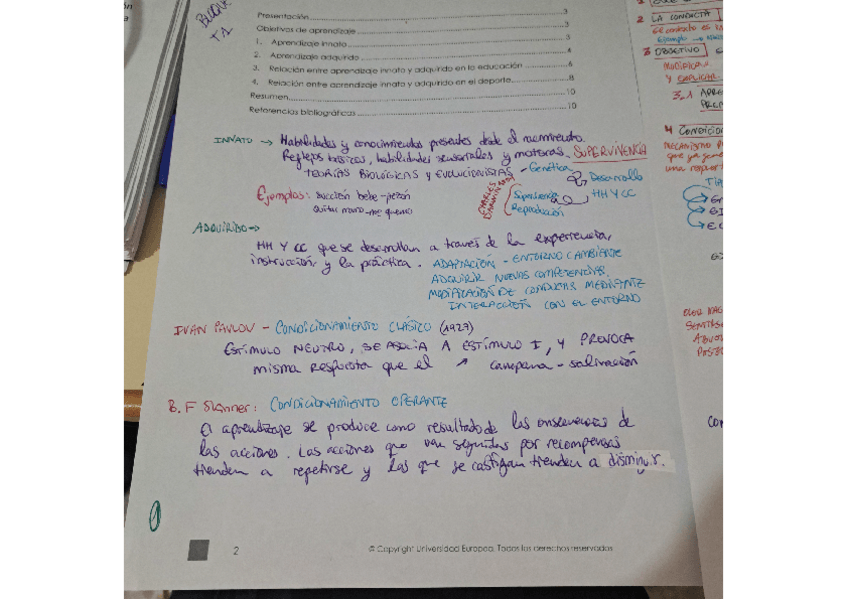 BLOQUE
T1
Presentación 3
Objetivos de aprendizaje 3
1. Aprendizaje innato 3
2. Aprendizaje adquirido 4
3. Relación entre aprendizaje innato y adquirido en la educación 6
4. Relación entre aprendizaje innato y adquirido en el deporte 8
Resumen 10
Referencias bibliográficas 10
INNATO → Habilidades y conocimientos presentes desde el nacimiento.
Reflejos básicos, habilidades sensoriales y motoras. SUPERVIVENCIA
TEORÍAS BIOLÓGICAS Y EVOLUCIONISTAS - Genética
Desarrollo
HH Y CC
CHARLES DARWIN
Supervivencia
Reproducción
Ejemplos: Succión bebe - pezón
Quitar mano - me quemo
ADQUIRIDO →
HH Y CC que se desarrollan a través de la experiencia,
instrucción, y la práctica. ADAPTACIÓN - ENTORNO CAMBIANTE
ADQUIRIR NUEVAS COMPETENCIAS.
MODIFICACIÓN DE CONDUCTAS MEDIANTE
INTERACCIÓN CON EL ENTORNO
IVAN PAVLOV - CONDICIONAMIENTO CLÁSICO (1927)
ESTÍMULO NEUTRO, SE ASOCIA A ESTÍMULO I, Y PROVOCA
misma respuesta que el ↗ campana - salivación
B. F Skinner: CONDICIONAMIENTO OPERANTE
El aprendizaje se produce como resultado de las consecuencias de
las acciones. Las acciones que van seguidas por recompensas
tienden a repetirse y las que se castigan tienden a disminuir.
1
2
© Copyright Universidad Europea. Todos los derechos reservados
2 LA CONDUCTA
3 OBJETIVO
Y EXPLICAR
3.1
MECANISMO
que ya
una